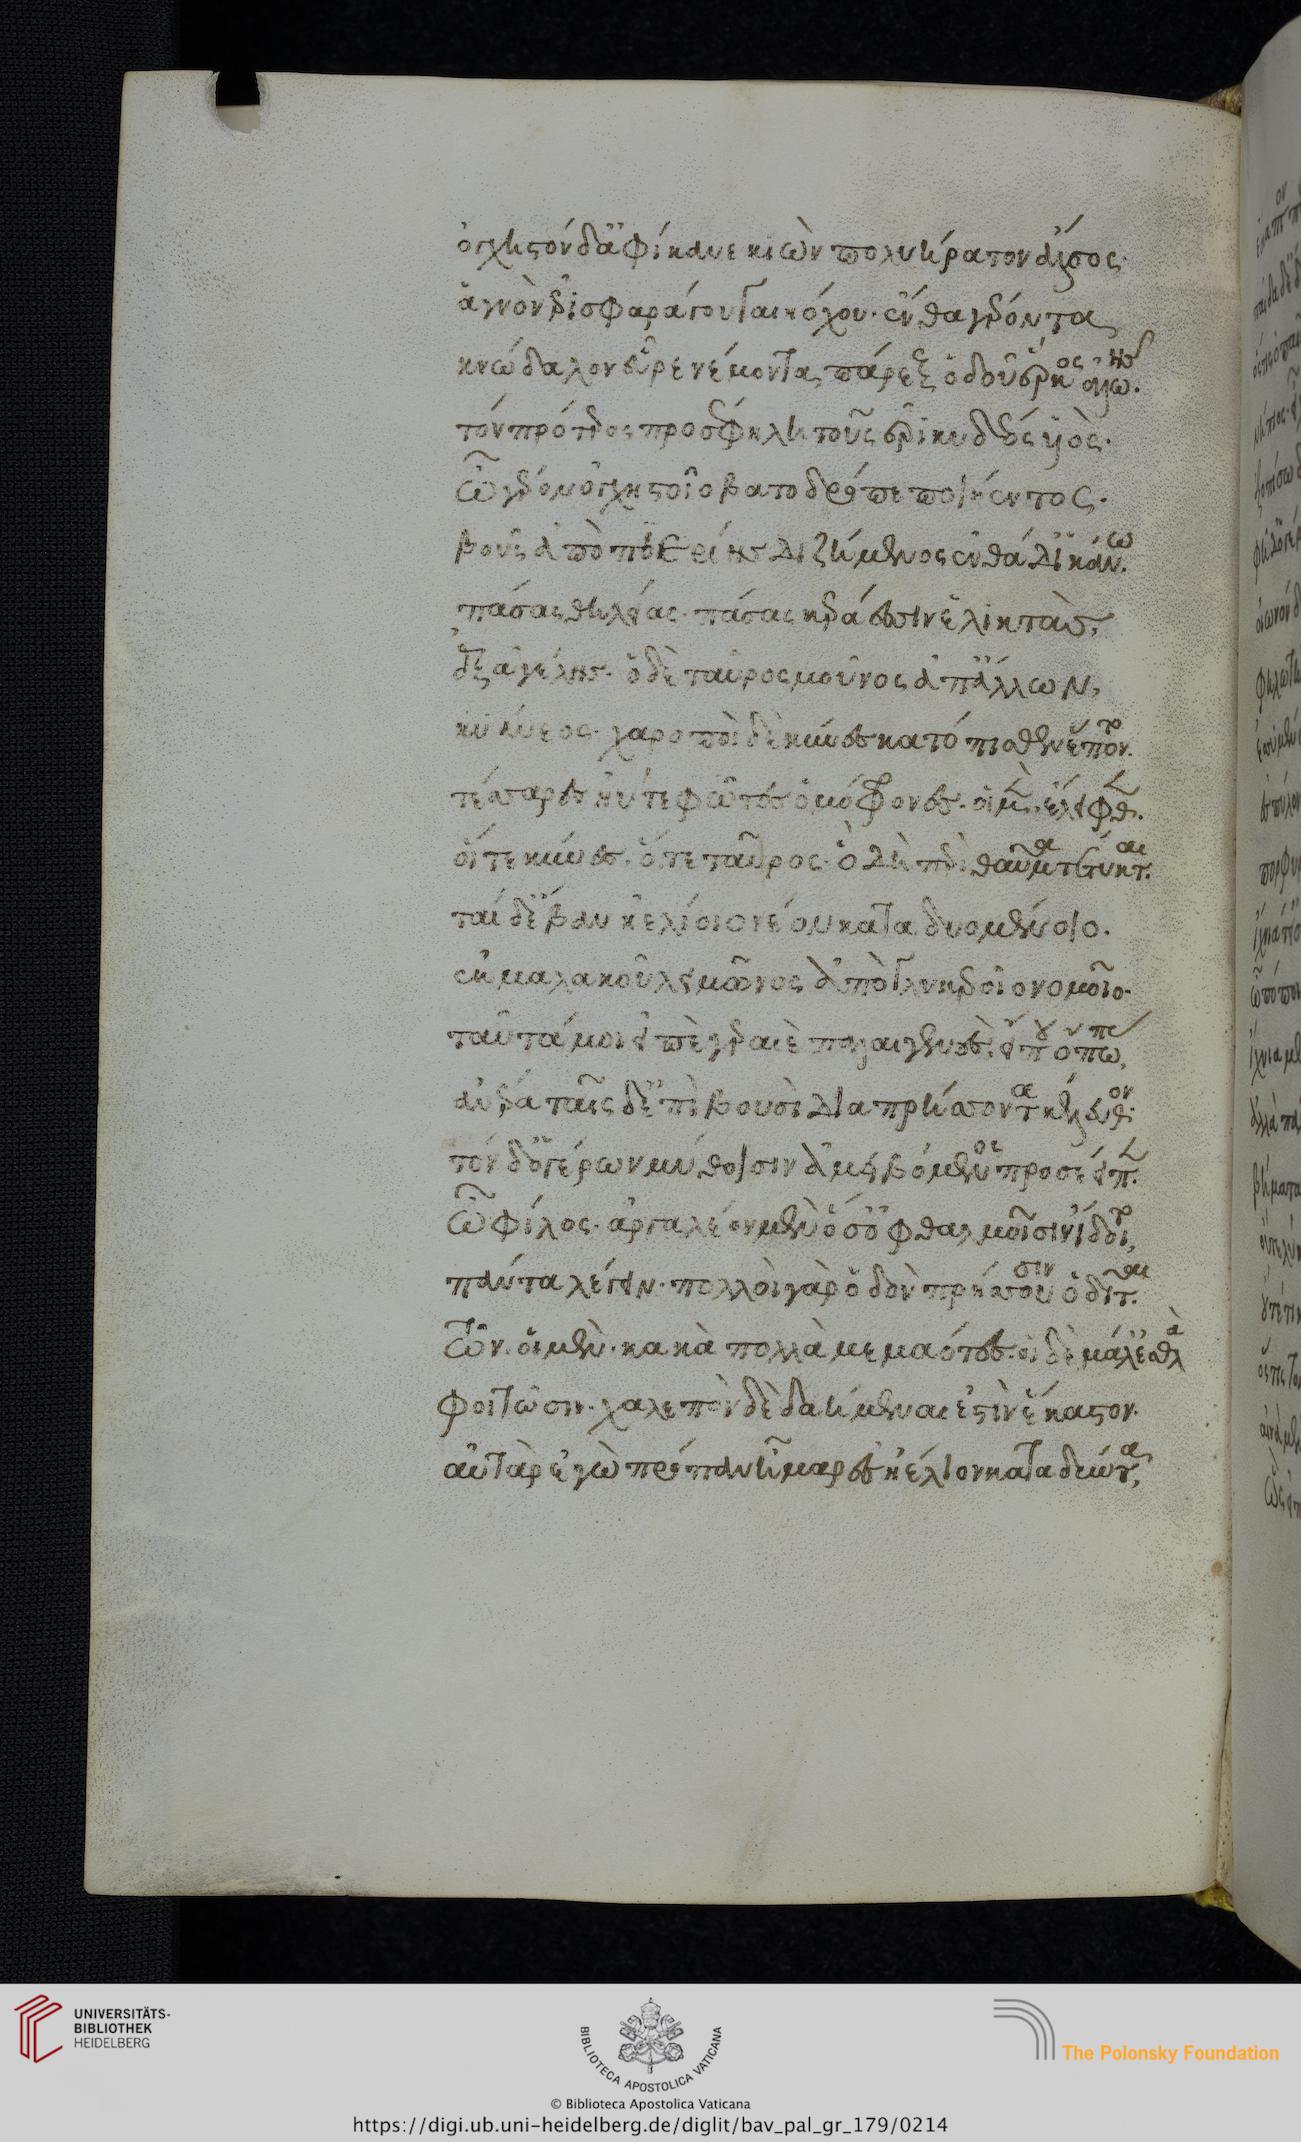 ὀγχηστὸν δ' ἀφίκανε κιὼν πολυήρατον ἄλσος·
ἁγνὸν ἐρισφαράγου γαιηόχου· ἔνθα γέροντα
κνώδαλον εὗρε νέμοντα πάρεξ ὁδοῦ ἕρκος ἀλωῆς.
τὸν πρότερος προσέφη λητοῦς ἐρικυδέος υἱός·
ὦ γέρον ὀγχηστοῖο βατοδρόπε ποιήεντος.
βοῦς ἀπὸ πιερίης διζήμενος ἐνθάδ' ἱκάνω.
πάσας θηλείας· πάσας κεράεσσιν ἑλικτάς,
ἐξ ἀγέλης· ὁ δὲ ταῦρος μοῦνος ἀπ' ἄλλων,
κυάνεος· χαροποὶ δὲ κύνες κατόπισθεν ἕποντο.
τέσσαρες ἠύτε φῶτες ὁμόφρονες· οἱ μὲν ἔλειφθεν.
οἵ τε κύνες· ὅ τε ταῦρος· ὃ δὴ περὶ θαῦμα τέτυκται.
ταὶ δ' ἔβαν ἠελίοιο νέον καταδυομένοιο.
ἐκ μαλακοῦ λειμῶνος ἀπὸ γλυκεροῖο νομοῖο.
ταῦτά μοι εἰπὲ γεραιὲ παλαιγενές, εἴ που ὄπωπας,
ἀνέρα ταῖς δ' ἐπὶ βουσὶ διαπρήσσοντα κέλευθον·
τὸν δ' ὁ γέρων μύθοισιν ἀμειβόμενος προσέειπεν.
ὦ φίλος· ἀργαλέον μὲν ὅσ' ὀφθαλμοῖσιν ἴδοιτο,
πάντα λέγειν· πολλοὶ γὰρ ὁδὸν πρήσσουσιν ὁδῖται.
τῶν οἱ μὲν· κακὰ πολλὰ μεμαότες· οἱ δὲ μάλ' ἐσθλὰ
φοιτῶσιν· χαλεπὸν δὲ δαήμεναι ἐστὶν ἕκαστον·
αὐτὰρ ἐγὼ πρόπαν ἦμαρ ἐς ἠέλιον καταδύντα,
UNIVERSITÄTS-
BIBLIOTHEK
HEIDELBERG
BIBLIOTECA APOSTOLICA VATICANA
The Polonsky Foundation
© Biblioteca Apostolica Vaticana
https://digi.ub.uni-heidelberg.de/diglit/bav_pal_gr_179/0214